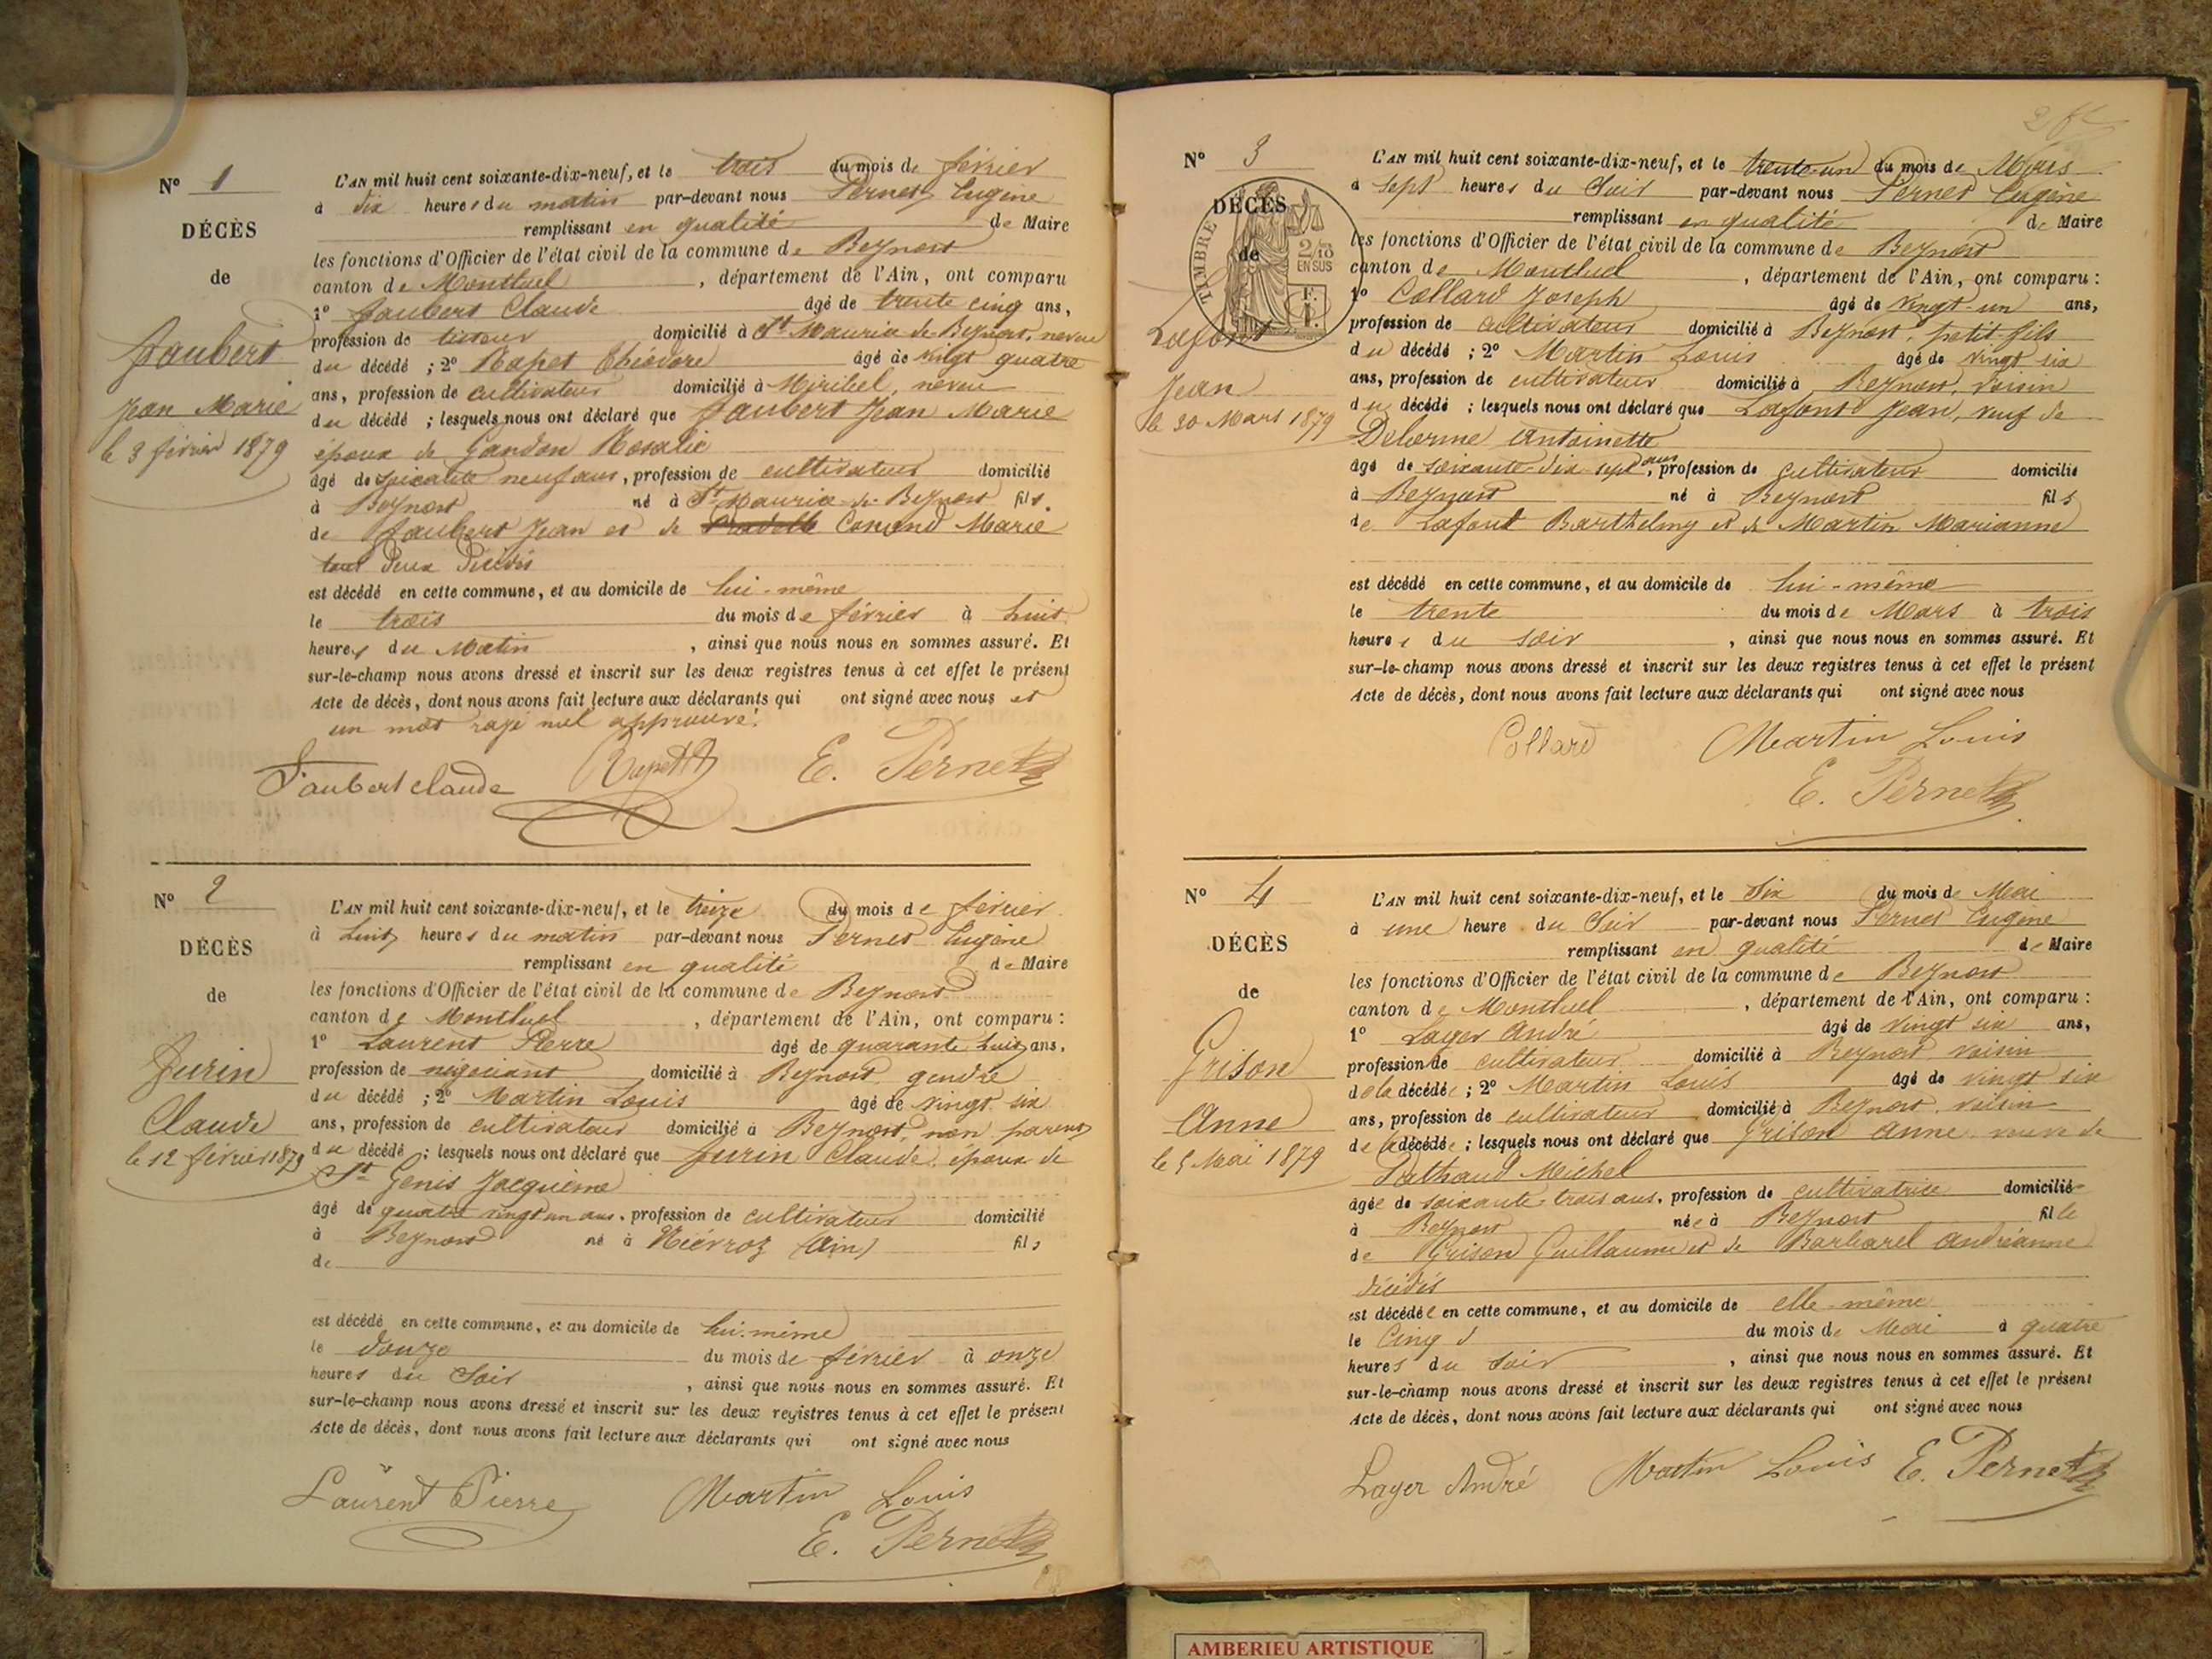 N° 1
DÉCÈS
de
Jaubert
Jean Marie
le 3 février 1879
L'AN mil huit cent soixante-dix-neuf, et le trois du mois de février
à dix heures du matin par-devant nous Pernet Eugène
remplissant en qualité de Maire
les fonctions d'Officier de l'état civil de la commune de Beynost
canton de Montluel, département de l'Ain, ont comparu
1° Jaubert Claude âgé de trente cinq ans,
profession de tisseur domicilié à St Maurice de Beynost, neveu
du décédé ; 2° Rapet Théodore âgé de vingt quatre
ans, profession de cultivateur domicilié à Miribel, neveu
du décédé ; lesquels nous ont déclaré que Jaubert Jean Marie
époux de Gandon Rosalie
âgé de soixante neuf ans, profession de cultivateur domicilié
à Beynost né à St Maurice de Beynost fils
de Jaubert Jean et de Conand Marie
tous deux décédés
est décédé en cette commune, et au domicile de lui-même
le trois du mois de février à huit
heures du Matin, ainsi que nous nous en sommes assuré. Et
sur-le-champ nous avons dressé et inscrit sur les deux registres tenus à cet effet le présent
Acte de décès, dont nous avons fait lecture aux déclarants qui ont signé avec nous et
un mot rayé nul approuvé.
Jaubert Claude Rapet E. Pernet
N° 2
DÉCÈS
de
Jurin
Claude
le 12 février 1879
L'AN mil huit cent soixante-dix-neuf, et le treize du mois de février
à huit heures du matin par-devant nous Pernet Eugène
remplissant en qualité de Maire
les fonctions d'Officier de l'état civil de la commune de Beynost
canton de Montluel, département de l'Ain, ont comparu :
1° Laurent Pierre âgé de quarante huit ans,
profession de négociant domicilié à Beynost gendre
du décédé ; 2° Martin Louis âgé de vingt six
ans, profession de cultivateur domicilié à Beynost, non parent
du décédé ; lesquels nous ont déclaré que Jurin Claude, époux de
St Genis Jacquême
âgé de quatre vingt un ans, profession de cultivateur domicilié
à Beynost né à Niévroz (Ain) fils
de
est décédé en cette commune, et au domicile de lui-même
le douze du mois de février à onze
heures du soir, ainsi que nous nous en sommes assuré. Et
sur-le-champ nous avons dressé et inscrit sur les deux registres tenus à cet effet le présent
Acte de décès, dont nous avons fait lecture aux déclarants qui ont signé avec nous
Laurent Pierre Martin Louis
E. Pernet
N° 3
DÉCÈS
de
TIMBRE
2/10
EN SUS
Lafont
Jean
le 30 Mars 1879
L'AN mil huit cent soixante-dix-neuf, et le trente-un du mois de Mars
à sept heures du soir par-devant nous Pernet Eugène
remplissant en qualité de Maire
les fonctions d'Officier de l'état civil de la commune de Beynost
canton de Montluel, département de l'Ain, ont comparu :
1° Collard Joseph âgé de vingt-un ans,
profession de cultivateur domicilié à Beynost, petit fils
du décédé ; 2° Martin Louis âgé de vingt six
ans, profession de cultivateur domicilié à Beynost, voisin
du décédé ; lesquels nous ont déclaré que Lafont Jean, veuf de
Delorme Antoinette
âgé de soixante-dix-sept ans, profession de cultivateur domicilié
à Beynost né à Beynost fils
de Lafont Barthelmy et de Martin Marianne
est décédé en cette commune, et au domicile de lui-même
le trente du mois de Mars à trois
heures du soir, ainsi que nous nous en sommes assuré. Et
sur-le-champ nous avons dressé et inscrit sur les deux registres tenus à cet effet le présent
Acte de décès, dont nous avons fait lecture aux déclarants qui ont signé avec nous
Collard Martin Louis
E. Pernet
N° 4
DÉCÈS
de
Grison
Anne
le 5 Mai 1879
L'AN mil huit cent soixante-dix-neuf, et le six du mois de Mai
à une heure du soir par-devant nous Pernet Eugène
remplissant en qualité de Maire
les fonctions d'Officier de l'état civil de la commune de Beynost
canton de Montluel, département de l'Ain, ont comparu :
1° Layer André âgé de vingt six ans,
profession de cultivateur domicilié à Beynost voisin
de la décédée ; 2° Martin Louis âgé de vingt six
ans, profession de cultivateur domicilié à Beynost, voisin
de la décédée ; lesquels nous ont déclaré que Grison Anne veuve de
Pathaud Michel
âgée de soixante-trois ans, profession de cultivatrice domiciliée
à Beynost née à Beynost fille
de Grison Guillaume et de Barbarel Andréanne
décédés
est décédée en cette commune, et au domicile de elle-même
le Cinq du mois de Mai à quatre
heures du soir, ainsi que nous nous en sommes assuré. Et
sur-le-champ nous avons dressé et inscrit sur les deux registres tenus à cet effet le présent
Acte de décès, dont nous avons fait lecture aux déclarants qui ont signé avec nous
Layer André Martin Louis E. Pernet
AMBERIEU ARTISTIQUE